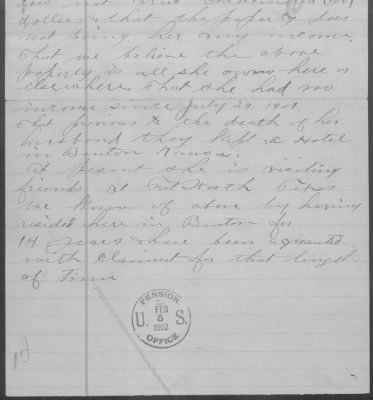 dollars & that the property does
not bring her any income.
That we believe the above
property is all she owns here or
elsewhere. That she had no
income since July 29 1901
That previous to the death of her
husband they kept a Hotel
in Burton Kansas.
At present she is visiting
friends at Fort Worth Texas
We know of above by having
resided here in Burton for
14 years & have been aquanted
with claimant for that lenght
of time
PENSION
FEB
5
1902
U. S.
OFFICE.